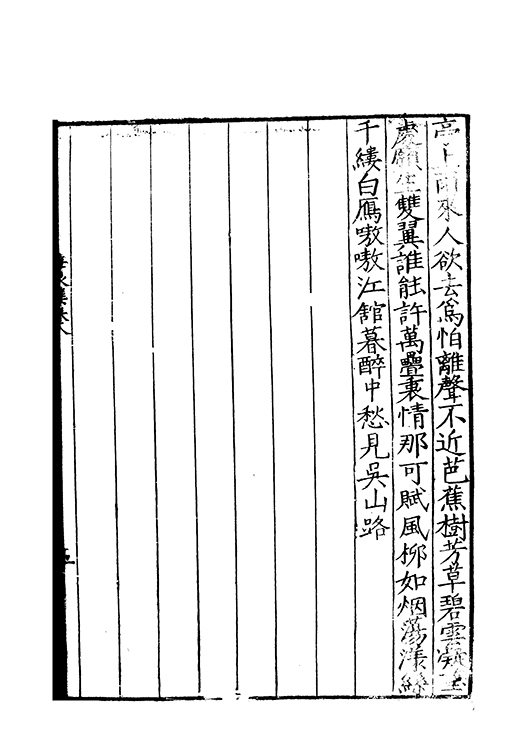 亭上雨來人欲去爲怕離聲不近芭蕉樹芳草碧雲凝望
處願生雙翼誰能許萬疊衷情那可賦風栁如烟蕩漾絲
千縷白鴈嗷嗷江舘暮醉中愁見吳山路